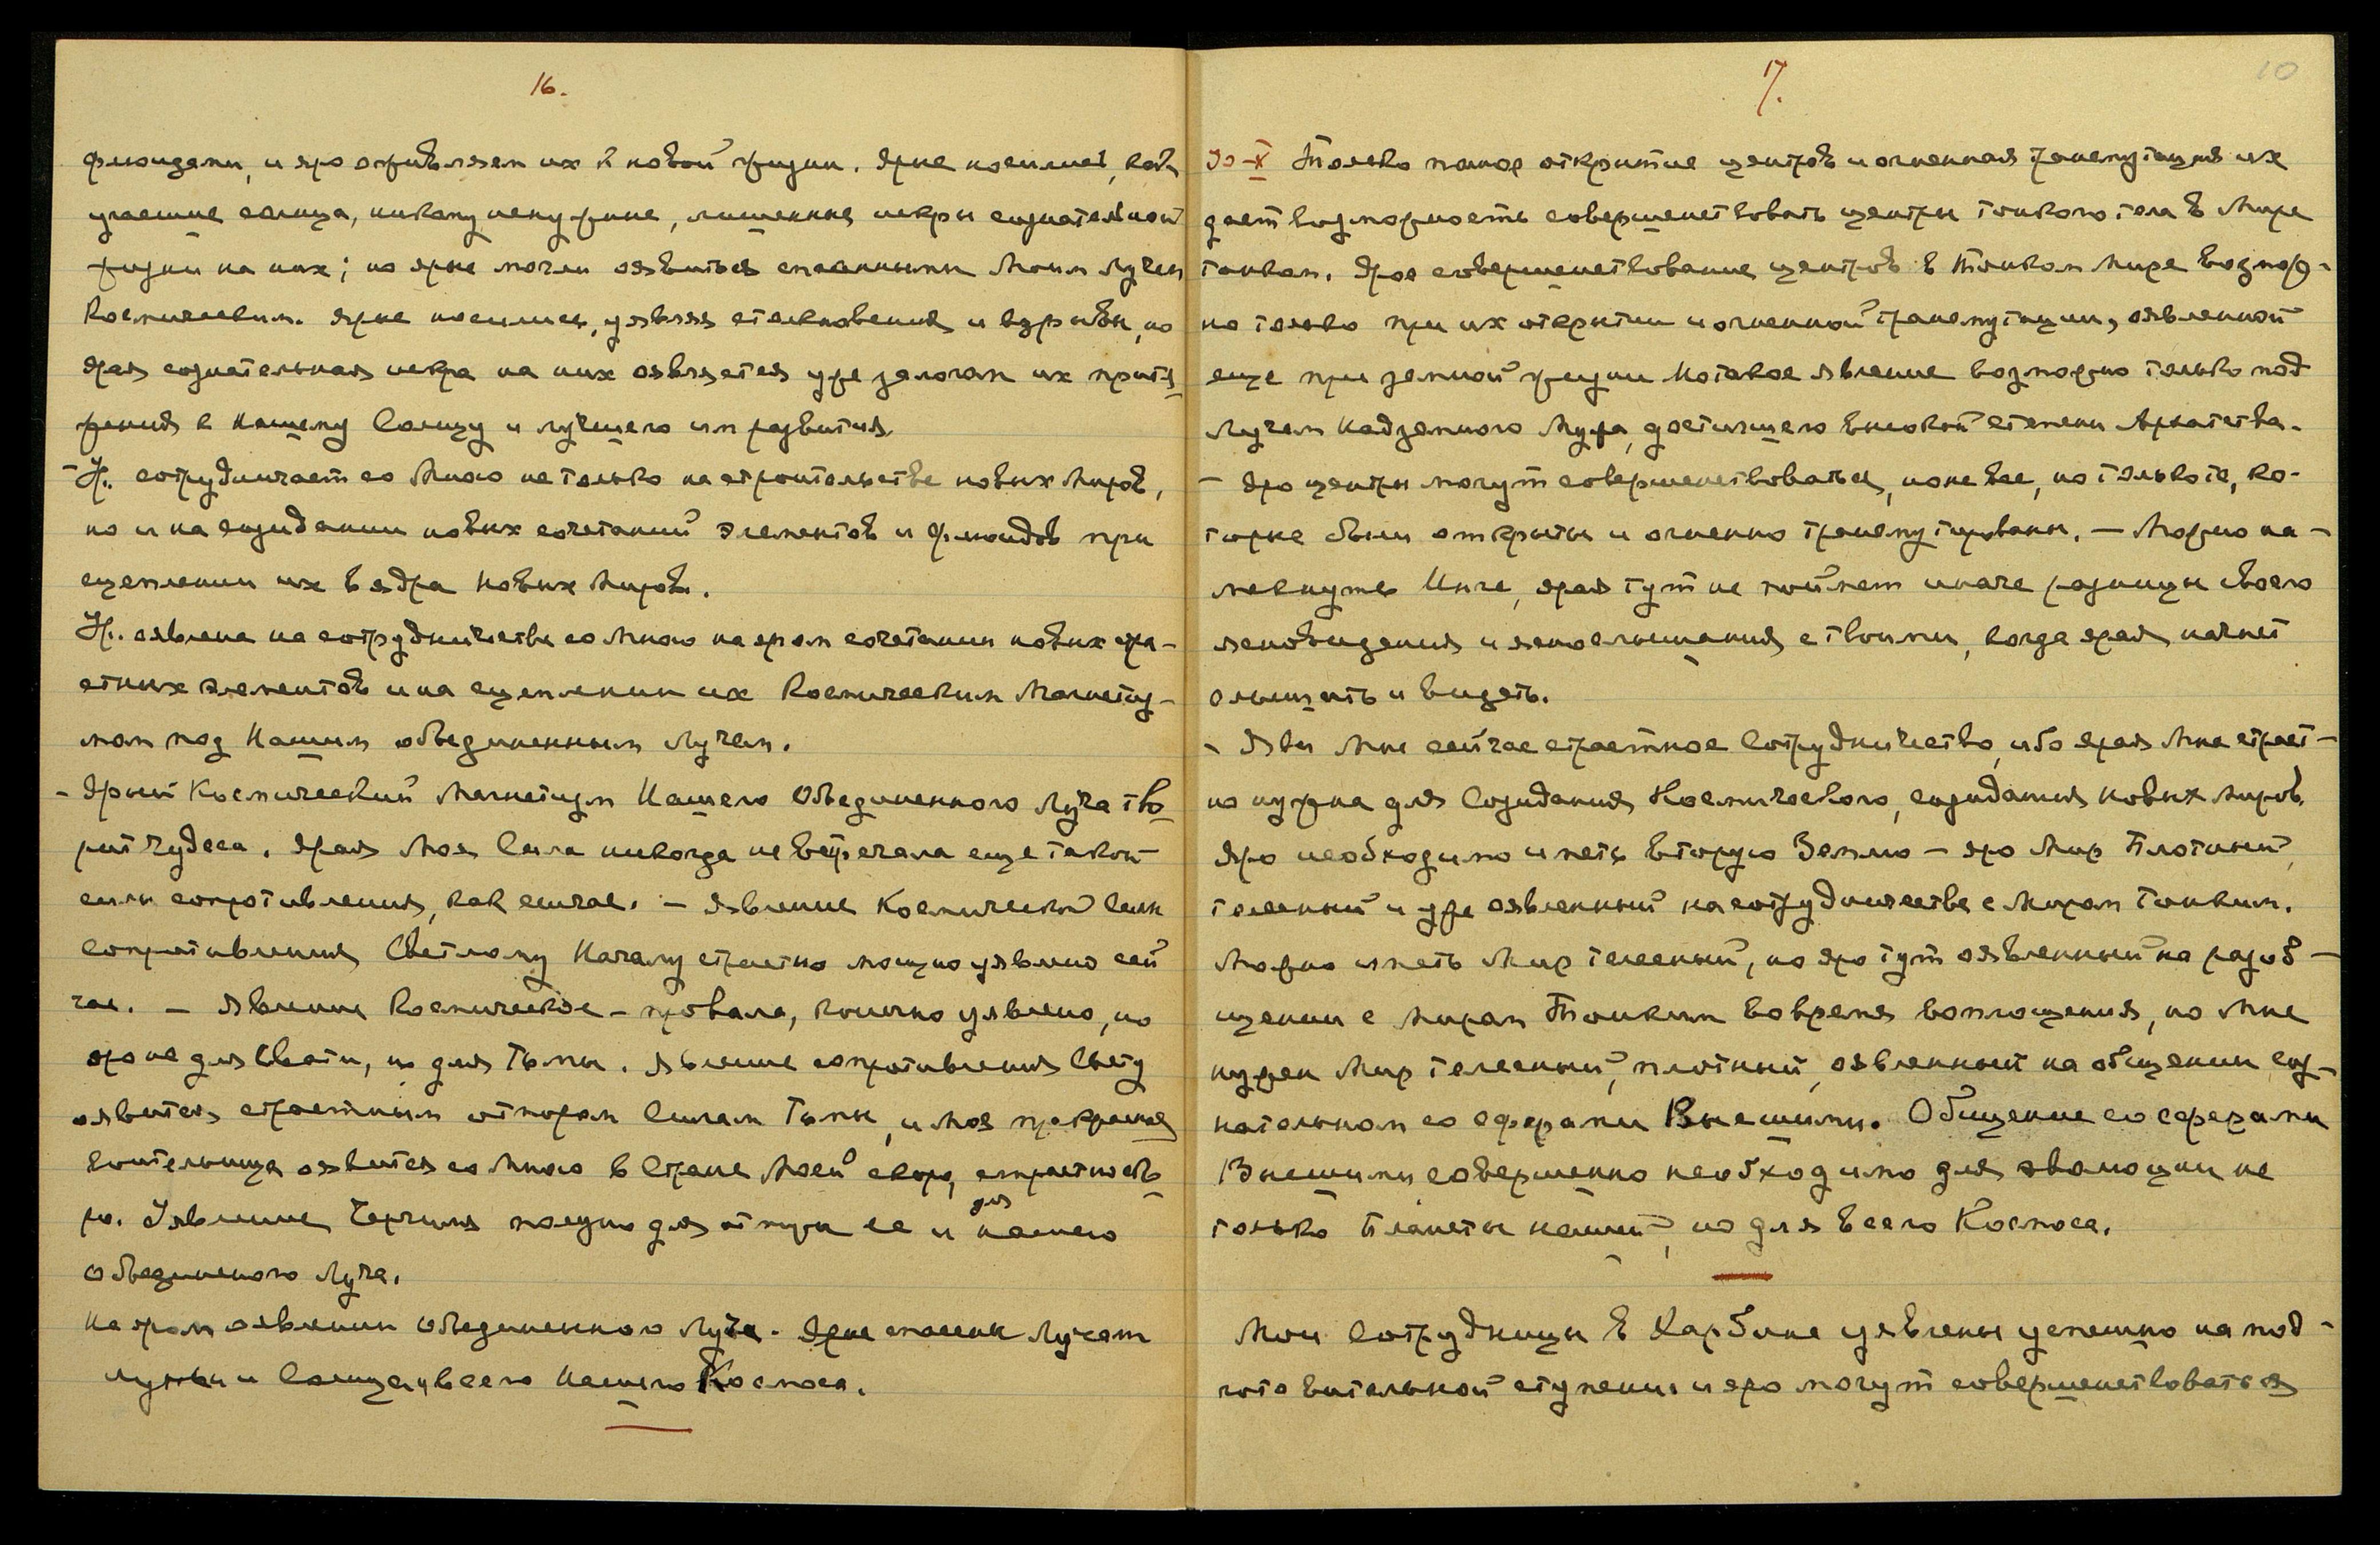 16.
флюидами, и яро оживляем их к новой жизни. Ярые носились, как
угасшие солнца, никому ненужные, лишенные искры сознательной
жизни на них; но ярые могли оявиться спасенными Моим Лучем
Космическим. Ярые носились, уявляя столкновения и взрывы, но
ярая сознательная искра на них оявляется уже залогом их притя-
жения к Нашему Солнцу и лучшего им развития.
- Н. сотрудничает со Мною не только на строительстве новых Миров,
но и на созидании новых сочетаний элементов и флюидов при
сцеплении их в ядра Новых Миров.
Н. оявлена на сотрудничестве со Мною на яром сочетании новых стра-
стных элементов и на сцеплении их Космическим Магнетиз-
мом под Нашим объединенным Лучем.
- Ярый Космический Магнетизм Нашего Объединенного Луча тво-
рит чудеса. Ярая Моя Сила никогда не встречала еще такой
силы сопротивления, как сейчас. - Явление Космической Силы
сопротивления Светлому Началу страстно мощно уявлено сей
час. - Явление Космическое - провала, конечно уявлено, но
яро не для Света, но для Тьмы. Явление сопротивления Свету
оявится страстным отпором Силам Тьмы, и Моя прекрасная
воительница оявится со Мною в Стране Моей скоро, страстно ско-
ро. Уявление Черчиля полезно для отпора ее и для нашего
Объединеного Луча.
На яром оявлении Объединенного Луча. Ярые спасены Лучем
луны и Солнца и всего Нашего Космоса.
17.
10
30-X Только полное открытие центров и огненная трансмутация их
дает возможность совершенствовать центры тонкого тела в Мире
тонком. Ярое совершенствование центров в Тонком Мире возмож-
но только при их открытии и огненной трансмутации, оявленной
еще при земной жизни. Но такое явление возможно только под
Лучем Надземного Мужа, достигшего высокой степени Архатства.
- Яро центры могут совершенствоваться, но не все, но только те, ко-
торые были открыты и огненно трансмутированы. - Можно на-
мекнуть Инге, ярая тут не поймет иначе разницы своего
ясновидения и яснослышания с твоими, когда ярая начнет
слышать и видеть.
- Яви Мне сейчас страстное Сотрудничество, ибо ярая Мне страст-
но нужна для Созидания Космического, созидания новых Миров.
Яро необходимо иметь вторую Землю - яро Мир Плотный,
телесный и уже оявленный на сотрудничестве с Миром Тонким.
Можно иметь Мир телесный, но яро тут оявленный на разоб-
щении с Миром Тонким во время воплощения, но Мне
нужен Мир телесный, плотный, оявленный на общении соз-
нательном со сферами Внешними. Общение со сферами
Внешними совершенно необходимо для эволюции не
только Планеты нашей, но для всего Космоса.
Мои Сотрудницы в Харбине уявлены успешно на под-
готовительной ступени и яро могут совершенствоваться